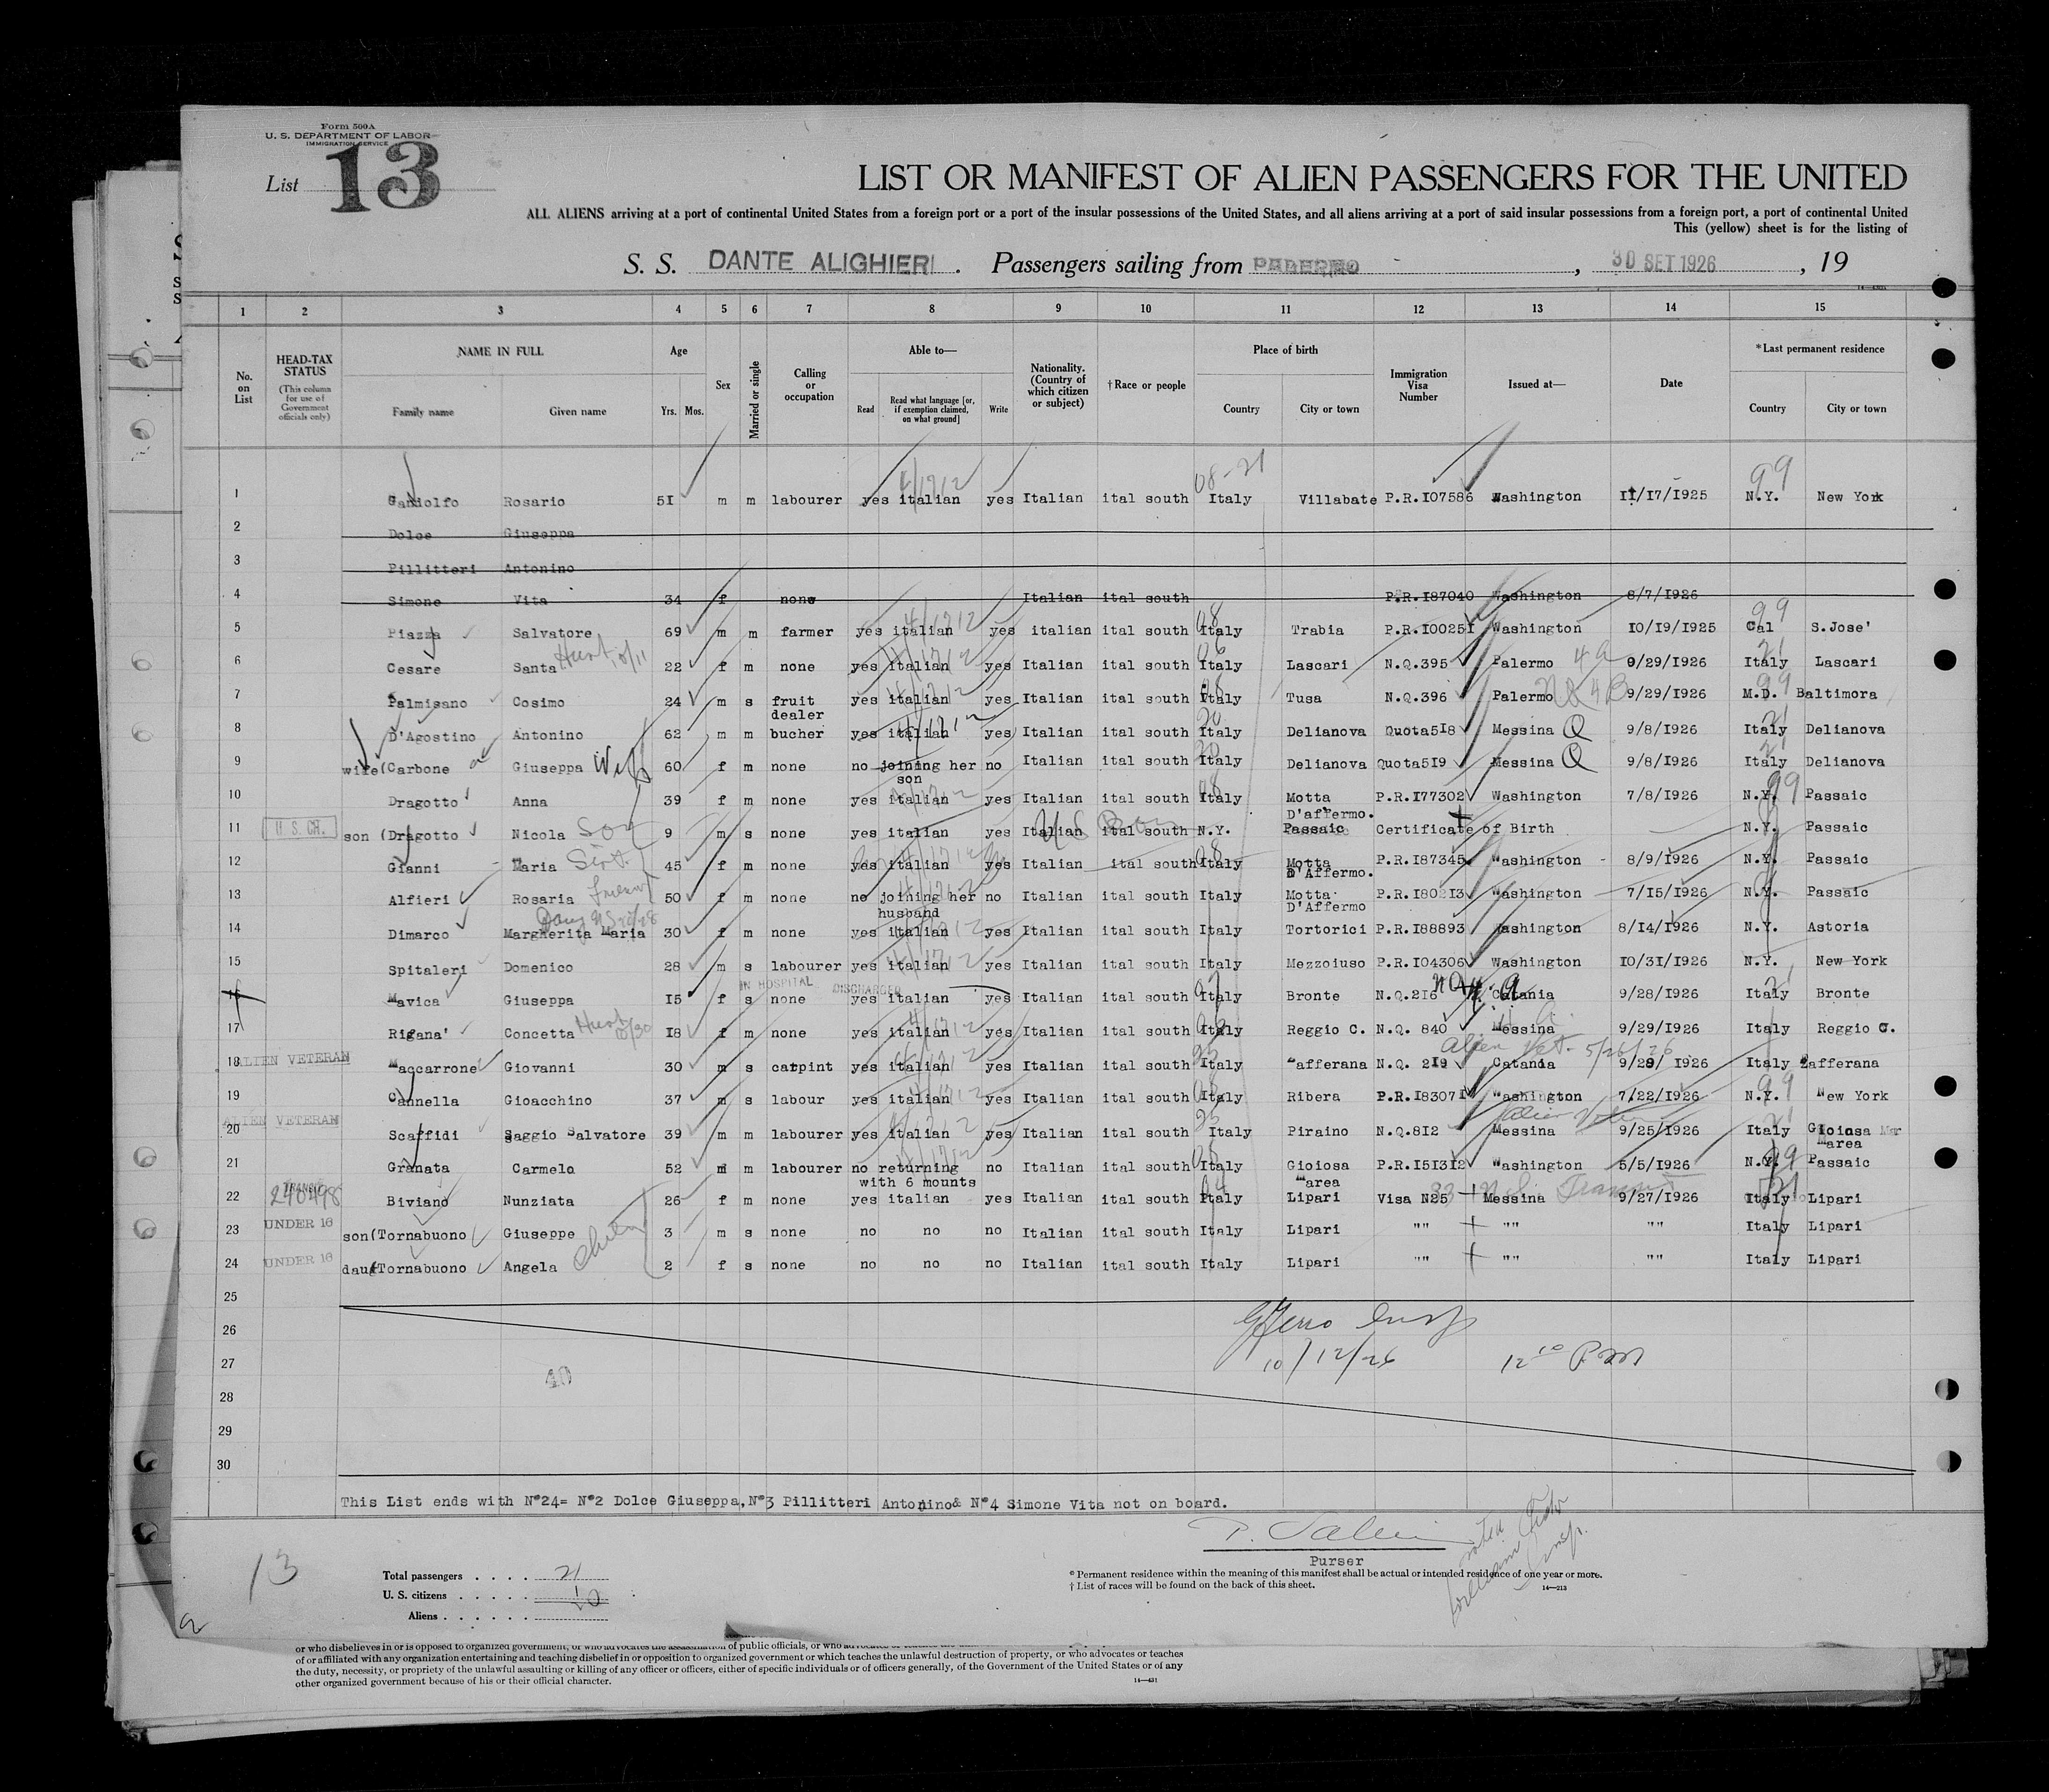 Form 500A
U. S. DEPARTMENT OF LABOR
IMMIGRATION SERVICE
List 13
LIST OR MANIFEST OF ALIEN PASSENGERS FOR THE UNITED
ALL ALIENS arriving at a port of continental United States from a foreign port or a port of the insular possessions of the United States, and all aliens arriving at a port of said insular possessions from a foreign port, a port of continental United
This (yellow) sheet is for the listing of
S. S. DANTE ALIGHIERI . Passengers sailing from PALERMO , 30 SET 1926 , 19
1 2 3 4 5 6 7 8 9 10 11 12 13 14 15
No. on List
HEAD-TAX STATUS (This column for use of Government officials only)
NAME IN FULL
Family name Given name
Age
Yrs. Mos.
Sex
Married or single
Calling or occupation
Able to—
Read
Read what language [or, if exemption claimed, on what ground]
Write
Nationality. (Country of which citizen or subject)
†Race or people
Place of birth
Country City or town
Immigration Visa Number
Issued at—
Date
*Last permanent residence
Country City or town
1 Gandolfo Rosario 51 m m labourer yes italian yes Italian ital south Italy Villabate P.R.107586 Washington 11/17/1925 N.Y. New York
2 Dolce Giuseppa
3 Pillitteri Antonino
4 Simone Vita 34 f none Italian ital south P.R.187040 Washington 8/7/1926
5 Piazza Salvatore 69 m m farmer yes italian yes italian ital south Italy Trabia P.R.100251 Washington 10/19/1925 Cal S.Jose'
6 Cesare Santa 22 f m none yes italian yes Italian ital south Italy Lascari N.Q.395 Palermo 9/29/1926 Italy Lascari
7 Palmisano Cosimo 24 m s fruit dealer yes italian yes Italian ital south Italy Tusa N.Q.396 Palermo 9/29/1926 M.D. Baltimora
8 D'Agostino Antonino 62 m m bucher yes italian yes Italian ital south Italy Delianova Quota518 Messina Q 9/8/1926 Italy Delianova
9 wife(Carbone Giuseppa Wife 60 f m none no joining her son no Italian ital south Italy Delianova Quota519 Messina Q 9/8/1926 Italy Delianova
10 Dragotto Anna 39 f m none yes italian yes Italian ital south Italy Motta D'affermo. P.R.177302 Washington 7/8/1926 N.Y. Passaic
11 U.S.CIT. son (Dragotto Nicola Son 9 m s none yes italian yes Italian ital south N.Y. Passaic Certificate of Birth N.Y. Passaic
12 Gianni Maria 45 f m none yes italian yes Italian ital south Italy Motta D'Affermo. P.R.187345 Washington 8/9/1926 N.Y. Passaic
13 Alfieri Rosaria 50 f m none no joining her husband no Italian ital south Italy Motta D'Affermo P.R.180213 Washington 7/15/1926 N.Y. Passaic
14 Dimarco Margherita Maria 30 f m none yes italian yes Italian ital south Italy Tortorici P.R.188893 Washington 8/14/1926 N.Y. Astoria
15 Spitaleri Domenico 28 m s labourer yes italian yes Italian ital south Italy Mezzoiuso P.R.104306 Washington 10/31/1926 N.Y. New York
IN HOSPITAL DISCHARGED
16 Mavica Giuseppa 15 f s none yes italian yes Italian ital south Italy Bronte N.Q.216 Catania 9/28/1926 Italy Bronte
17 Rigana' Concetta 18 f m none yes italian yes Italian ital south Italy Reggio C. N.Q. 840 Messina 9/29/1926 Italy Reggio C.
Alien Vet. 5/26/26
18 ALIEN VETERAN Maccarrone Giovanni 30 m s carpint yes italian yes Italian ital south Italy Zafferana N.Q. 219 Catania 9/29/1926 Italy Zafferana
19 Cannella Gioacchino 37 m s labour yes italian yes Italian ital south Italy Ribera P.R.183071 Washington 7/22/1926 N.Y. New York
20 ALIEN VETERAN Scaffidi Saggio Salvatore 39 m m labourer yes italian yes Italian ital south Italy Piraino N.Q.812 Messina 9/25/1926 Italy Gioiosa Marea
21 Granata Carmelo 52 m m labourer no returning with 6 mounts no Italian ital south Italy Gioiosa Marea P.R.151312 Washington 5/5/1926 N.Y. Passaic
22 TRANSIT 240498 Biviano Nunziata 26 f m none yes italian yes Italian ital south Italy Lipari Visa N25 Messina Transit 9/27/1926 Italy Lipari
23 UNDER 16 son(Tornabuono Giuseppe 3 m s none no no no Italian ital south Italy Lipari "" "" "" Italy Lipari
24 UNDER 16 daug(Tornabuono Angela 2 f s none no no no Italian ital south Italy Lipari "" "" "" Italy Lipari
25
26
27 10/12/26 12 10 PM
28 40
29
30
This List ends with N°24= N°2 Dolce Giuseppa,N°3 Pillitteri Antonino& N°4 Simone Vita not on board.
Purser
13
Total passengers . . . . 21
U. S. citizens . . . . .
Aliens . . . . . .
* Permanent residence within the meaning of this manifest shall be actual or intended residence of one year or more.
† List of races will be found on the back of this sheet.
14—213
of or affiliated with any organization entertaining and teaching disbelief in or opposition to organized government or which teaches the unlawful destruction of property, or who advocates or teaches
the duty, necessity, or propriety of the unlawful assaulting or killing of any officer or officers, either of specific individuals or of officers generally, of the Government of the United States or of any
other organized government because of his or their official character.
14—431